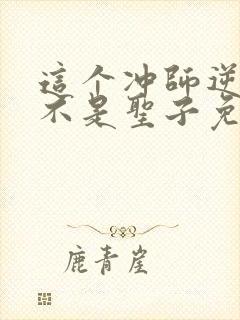 這个冲師逆
不是聖子免
鹿青崖